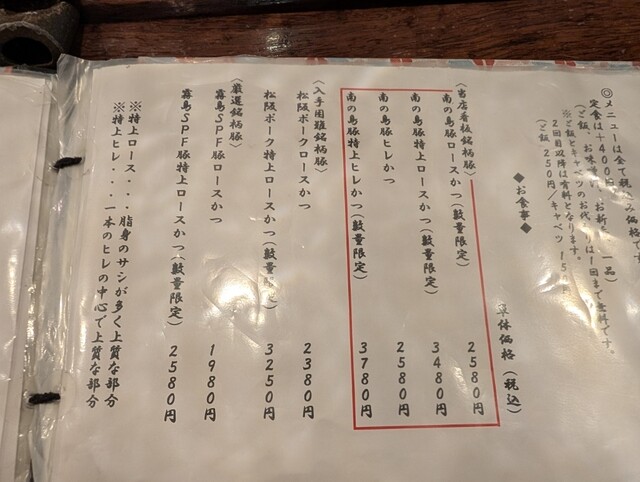 ◎メニューは全て税込み価格です。
定食は＋400円
(ご飯、お味噌、お新、一品)
※ご飯とキャベツのお代わりは1回まで無料です。
2回目以降は有料となります。
(ご飯 250円／キャベツ 150円
◆お食事◆
単体価格(税込)
〈当店看板銘柄豚〉
南の島豚ロースかつ(数量限定) 2580円
南の島豚特上ロースかつ(数量限定) 3480円
南の島豚ヒレかつ 2580円
南の島豚特上ヒレかつ(数量限定) 3780円
〈入手困難銘柄豚〉
松阪ポークロースかつ 2380円
松阪ポーク特上ロースかつ(数量限定) 3250円
〈厳選銘柄豚〉
霧島SPF豚ロースかつ 1980円
霧島SPF豚特上ロースかつ(数量限定) 2580円
※特上ロース・・・脂身のサシが多く上質な部分
※特上ヒレ・・・一本のヒレの中心で上質な部分